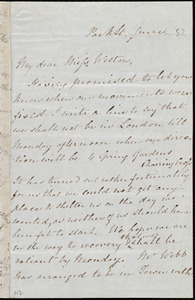 Park St. June 52
My dear Miss Weston,
Having promised to let you
know when our movements were
fixed I write a line to say that
we shall not be in London till
Monday afternoon when our direc-
tion will be 4 Spring Gardens
Charing Cross
It has turned out rather fortunately
for us that we could not get any
place to shelter us on the day we
wanted, as neither of us should have
been fit to start. We hope we are
on the way to recovery & shall be
valiant by Monday. Mr Webb
has arranged to be in Town with